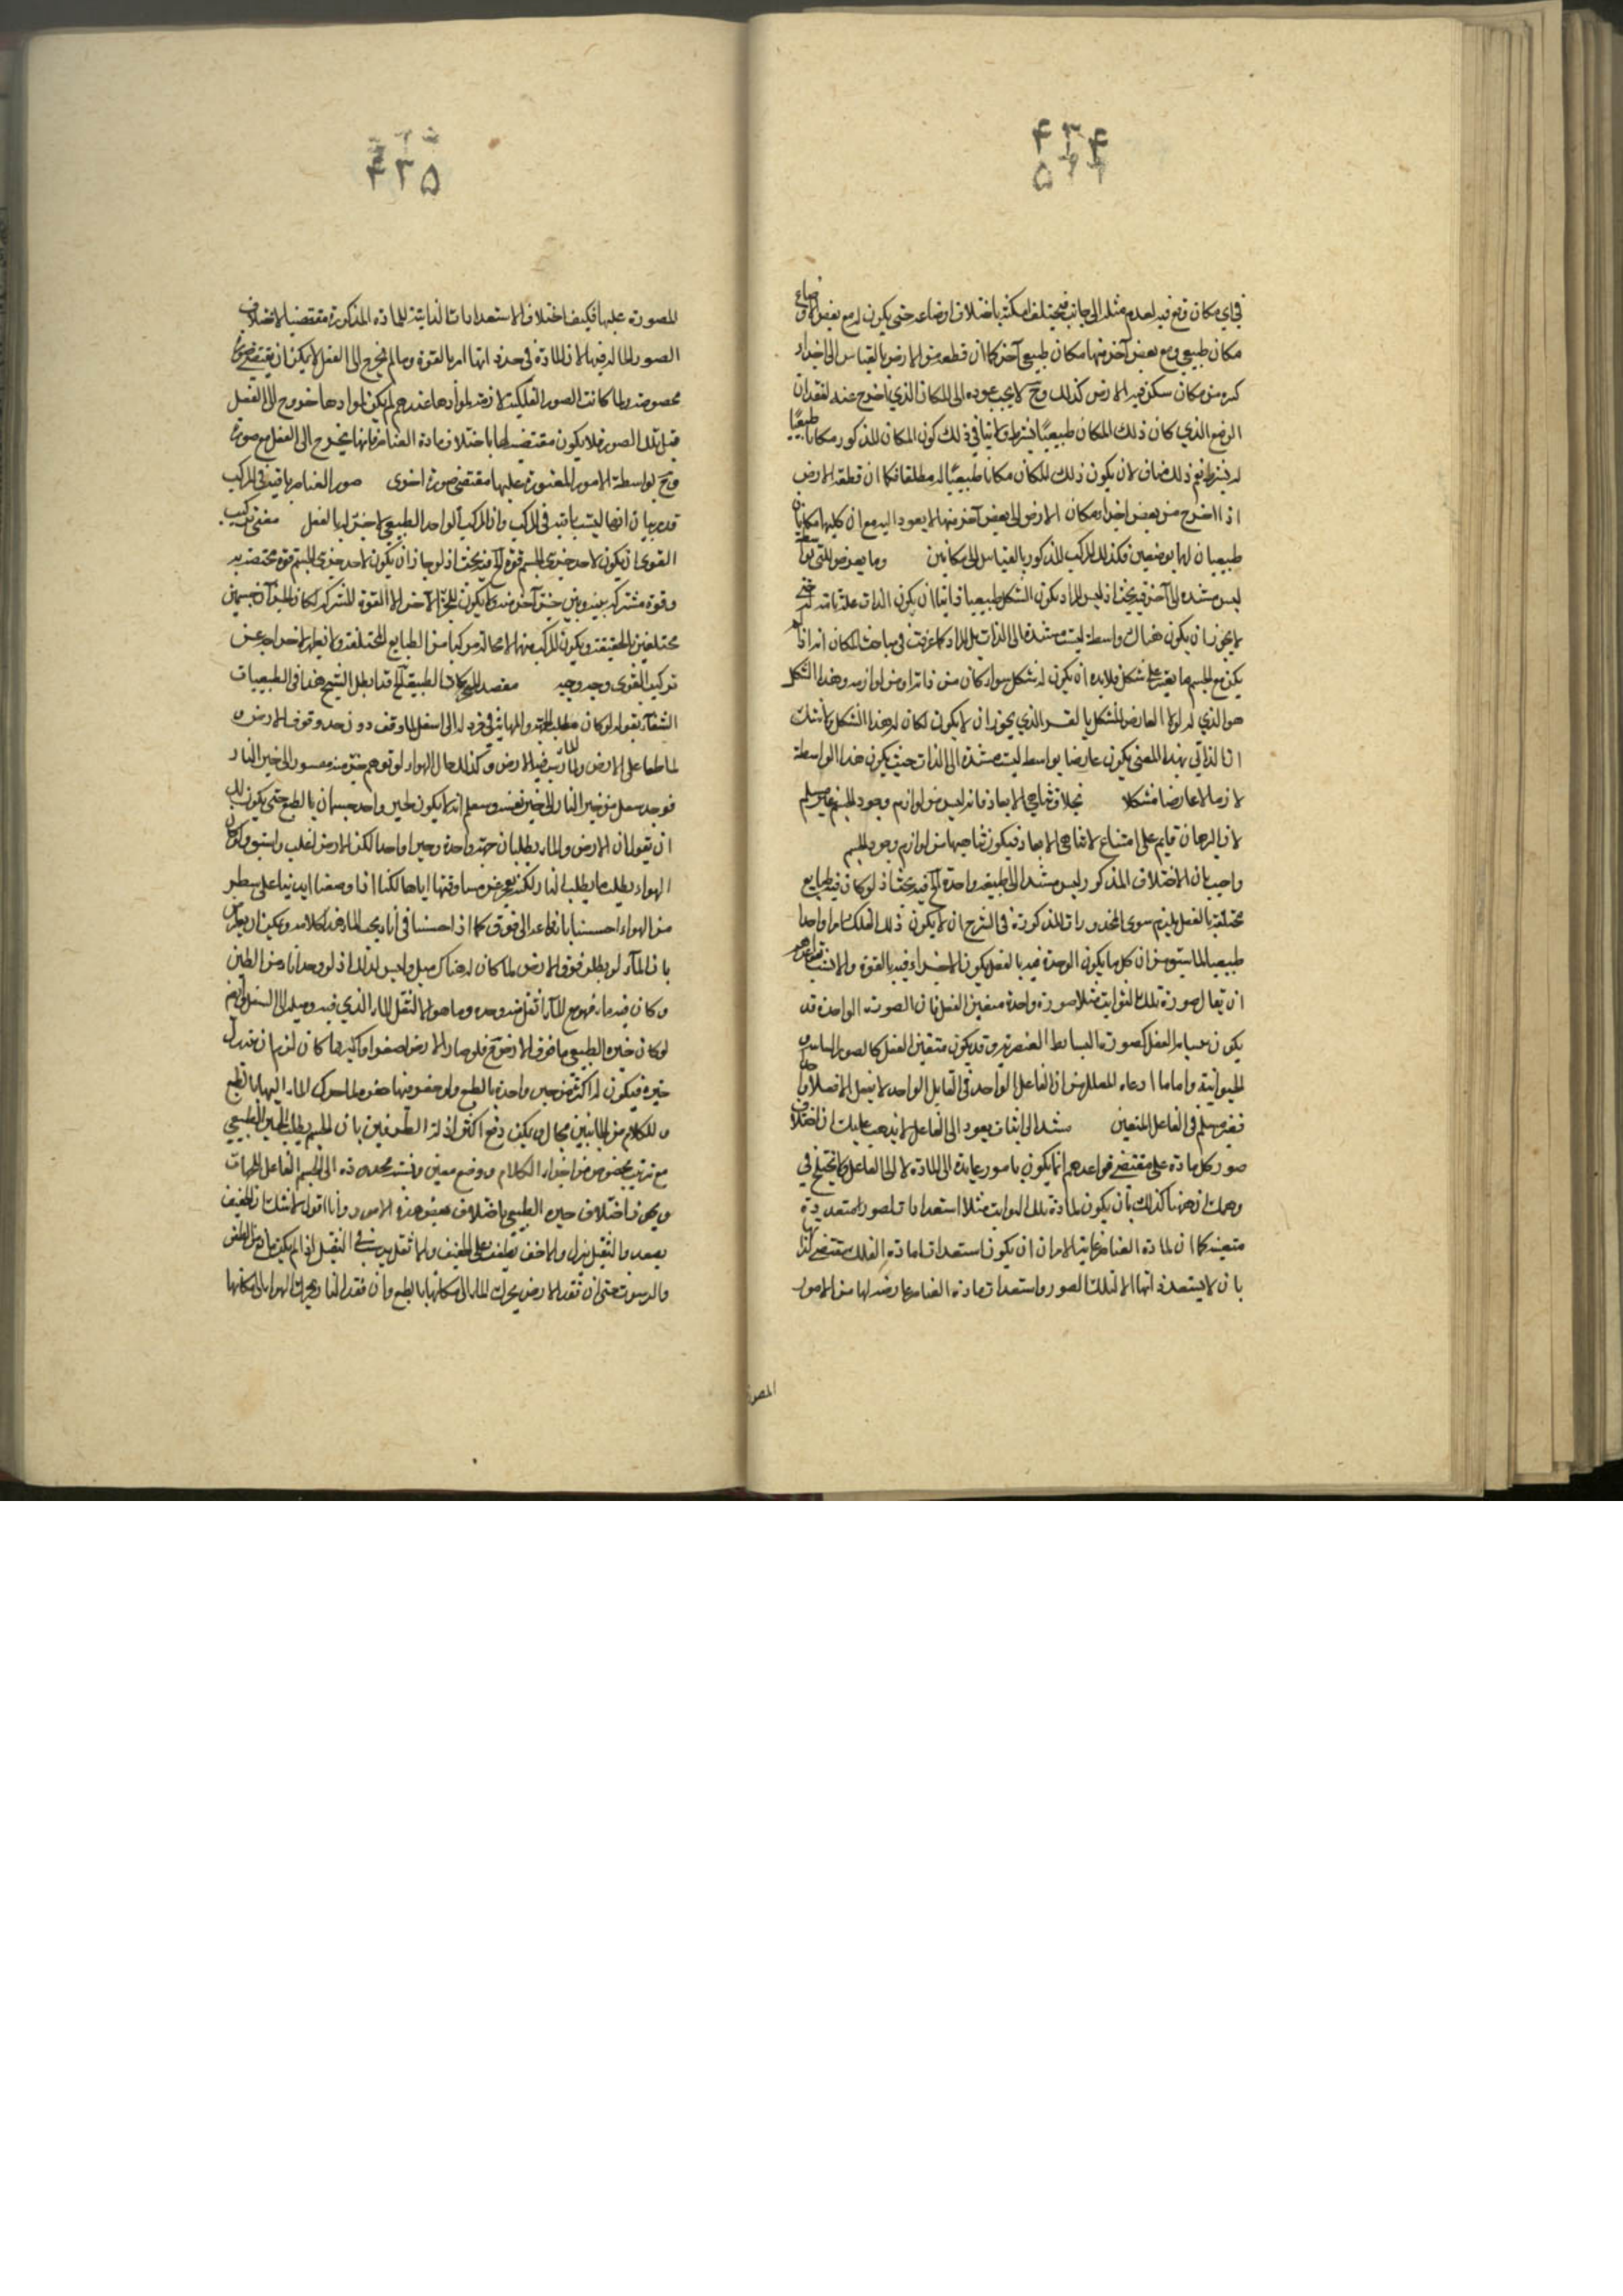 في اي مكان وقع فيه لعدم مثله الى جانب فيختلف امكنته باختلاف اوضاعه حتى يكون له مع بعض الاوضاع
مكان طبيعي ومع بعض آخر منها مكان طبيعي آخر كما ان قطعة من الارض بالقياس الى اجزاء
كره من مكان سكن فيه الارض كذلك وح لا يجب عوده الى المكان الذي اخرج عنه لفقدان
الوضع الذي كان ذلك المكان طبيعيا بشرطه ولا ينافي ذلك كون المكان المذكور مكانا طبيعيا
له بشرط نعم ذلك مناف لان يكون ذلك المكان مكانا طبيعيا له مطلقا فكما ان قطعة الارض
اذا اخرج من بعض اجزاء مكان الارض الى بعض آخر منها لا يعود اليه مع ان كليهما مكانان
طبيعيان لها بوضعين فكذلك المركب المذكور بالقياس الى مكانين وما يعرض للشي بواسطة
ليس مستندة الى آخره فيه بحث اذ ليس المراد بكون الشكل طبيعيا ذاتيا ان يكون الذات علة تامة له حتى
لا يجوز ان يكون هناك واسطة ليست مستندة الى الذات بل المراد كما عرفت في مباحث المكان انه اذا لم
يكن مع الجسم ما يغيره على شكل فلا بد ان يكون له شكل سواء كان من ذاته او من لوازمه وهذا الشكل
هو الذي له لولا العارض المشكل بالقسر الذي يجوز ان لا يكون لكان له هذا الشكل ولا شك
ان الذاتي بهذا المعنى يكون عارضا بواسطة ليست مستندة الى الذات حيث يكون هذا الواسطة
لازما لا عارضا مشكلا بخلاف تناهي الابعاد فانه ليس من لوازم وجود الجسم غير مسلم
لان البرهان قايم على امتناع لا تناهي الابعاد فيكون تناهيها من لوازم وجود الجسم
واجيب بان الاختلاف المذكور ليس مستندا الى طبيعة واحدة الخ فيه بحث اذ لو كان فيه طبايع
مختلفة بالفعل يلزم سوى المحذورات المذكورة في الشرح ان لا يكون ذلك الفلك امرا واحدا
طبيعيا لما سبق من ان كل ما يكون الوحدة فيه بالفعل يكون الاجزاء فيه بالقوة والاشبه بقواعدهم
ان يقال صورة تلك الثوابت مثلا صورة واحدة متفنن الفعل فان الصورة الواحدة قد
يكون الفعل كصورة البسائط العنصرية وقد يكون متفنن الفعل كالصور النباتية
الحيوانية واما ما ادعاه المعلل من ان الفاعل الواحد في القابل الواحد لا يفعل الا فعلا واحدا
فغير مسلم في الفاعل المتفنن مستند الى شأن يعود الى الفاعل لا يذهب عليك ان اختلاف
صور كل مادة على مقتضى قواعدهم انما يكون بامور عايدة الى المادة لا الى الفاعل ولا يختلج في
وهمك ان ههنا كذلك بان يكون لمادة تلك الثوابت مثلا استعدادات لصور متعددة
متعينة كما ان لمادة العناصر غاية الامر ان ان يكون استعدادات مادة الفلك مقتضى لذاتها
بان لا يستعد ذاتها الا لتلك الصور واستعدادات مادة العناصر عارضة لها من الامور
المصورة
المصورة عليها فكيف اختلاف الاستعدادات الذاتية للمادة المذكورة مقتضيا لاختلاف
الصور الحالة فيها لان المادة في حد ذاتها امر بالقوة وما لم يخرج الى الفعل لا يمكن ان يقتضي صورة
مخصوصة ولما كانت الصور الفلكية لازمة لموادها عندهم لم يكن لموادها خروج الى الفعل
قبل تلك الصور فلا يكون مقتضية لها باختلاف مادة العناصر فانها يخرج الى الفعل مع صورة
وح بواسطة الامور المغيرة عليها مقتضى صورة اخرى صور العناصر باقية في المركب
قد مر بيان انها ليست باقية في المركب وان المركب الواحد الطبيعي لا جزء له بالفعل معنى تركيب
القوى ان يكون لاحد جزئي الجسم قوة الخ فيه بحث اذ لو جاز ان يكون لاحد جزئي الجسم قوة مختصة به
وقوة مشتركة بينه وبين جزء آخر منه ولا يكون للجزء الآخر الا القوة المشتركة لكان الجزآن جسمين
مختلفين بالحقيقة ويكون المركب منهما لا محالة مركبا من الطبايع المختلفة ولا نعلم لاخراجه عن
تركيب القوى وجه وجيه مقصد الحركات الطبيعية الخ قد ابطل الشيخ هذا في الطبيعيات
الشفاء بقوله لو كان مطلب الجهة والنهاية في فرد له الى اسفل لما وقف دون حد وقوف الارض
لما طفا على الارض ولما رسب فيه الارض وكذلك حال الهواء لو توهم جزء منه مقسور الى حيز النار
فوجد منتقل من حيز النار الى حيز نفسه وستعلم انه لا يكون لحيز واحد جسمان بالطبع حتى يكون لك
ان يقول ان الارض والماء يطلبان جهة واحدة وحيزا واحدا لكن الارض اغلب واسبق وكذلك
الهواء يطلب ما يطلب النار لكنه يعجز من مساوقتها اياها لكنا اذا وضعنا ايدينا على سطح
من الهواء احسسنا باندفاعه الى فوق كما اذا احسسنا في اناء تحت الماء هذا كلامه ويمكن ان يعارض
بان الماء لو يطلب فوق الارض لما كان له هناك ميل وليس كذلك اذ لو وجد اناء من الطين
وكان فيه ماء فهو مع الماء اثقل منه وحده وما هو الا لثقل الماء الذي فيه وميله الى السفل وايضا
لو كان حيزه الطبيعي ما فوق الارض فلو صار الارض اصغر او اكبر مما كان لزم ان يتبدل
حيزه فيكون له اكثر من حيز واحد بالطبع ولو حفر منها حفرة لما تحرك الماء اليها بالطبع
وللكلام من الجانبين مجال ويمكن دفع اكثر ادلة الطرفين بان الجسم يطلب الحيز الطبيعي
مع ترتيب مخصوص من اجزاء الكلام ووضع معين ونسبة محدودة الى الجسم الفاعل للجهات
ويجوز اختلاف حيزه الطبيعي باختلاف بعض هذه الامور وانا اقول لا شك ان الخفيف
يصعد والثقيل ينزل والاخف يطفو على الخفيف والاثقل يرسب في الثقيل اذا لم يكن مانع من الطفو
والرسوب حتى ان فقد الارض يحرك الماء الى مكانها بالطبع وان فقد النار يحرك الهواء الى مكانها